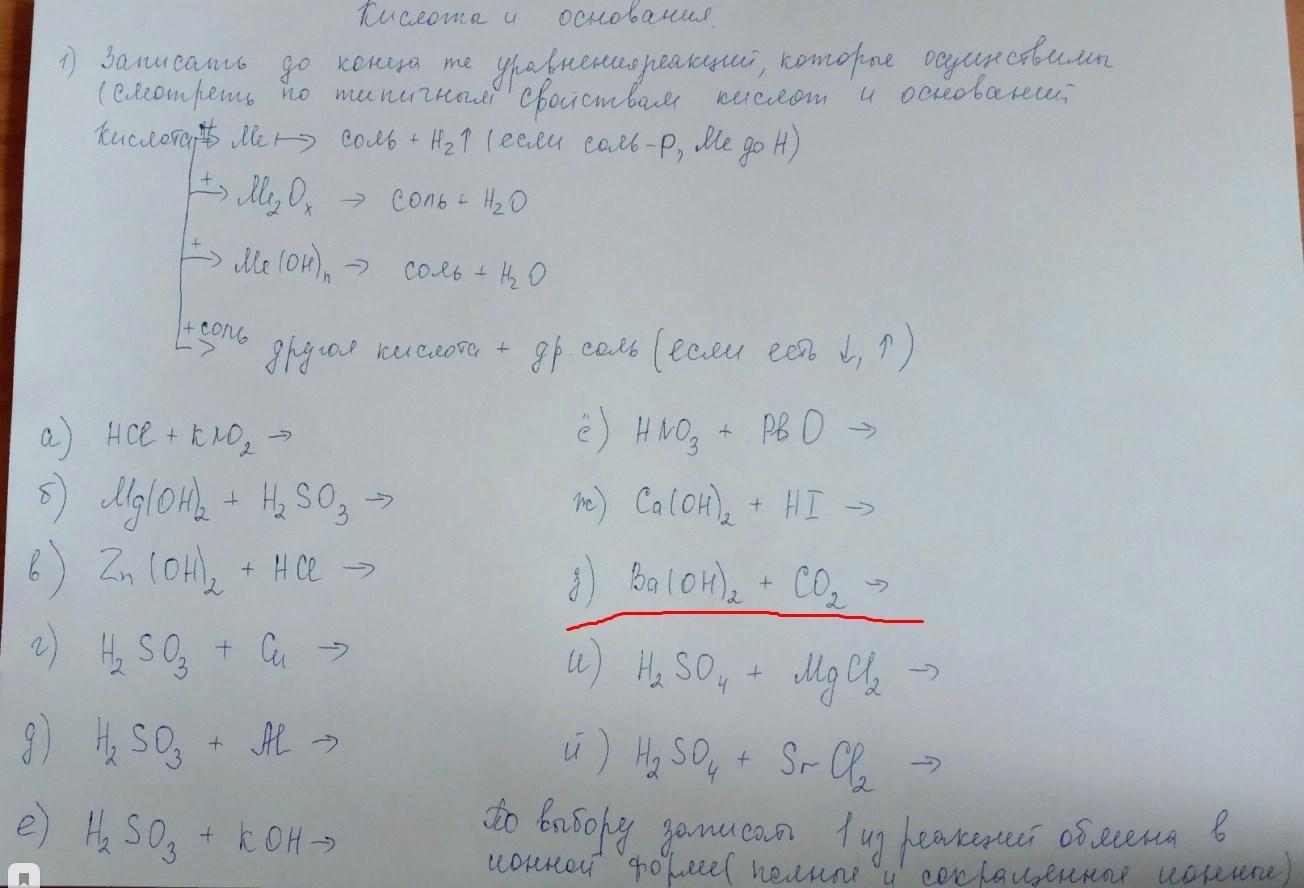 Кислоты и основания.
1) Записать до конца те уравнения реакций, которые осуществимы
(смотреть по типичным свойствам кислот и оснований
Кислота + Me → соль + H₂↑ (если соль-р, Me до H)
+ → Me₂Oₓ → соль + H₂O
+ → Me(OH)ₙ → соль + H₂O
+ соль → другая кислота + др. соль (если есть ↓, ↑)
а) HCl + KNO₂ →
б) Mg(OH)₂ + H₂SO₃ →
в) Zn(OH)₂ + HCl →
г) H₂SO₃ + Cu →
д) H₂SO₃ + Al →
е) H₂SO₃ + KOH →
ё) HNO₃ + PbO →
ж) Ca(OH)₂ + HI →
з) Ba(OH)₂ + CO₂ →
и) H₂SO₄ + MgCl₂ →
й) H₂SO₄ + SrCl₂ →
По выбору записать 1 из реакций обмена в
ионной форме (полные и сокращенные ионные)